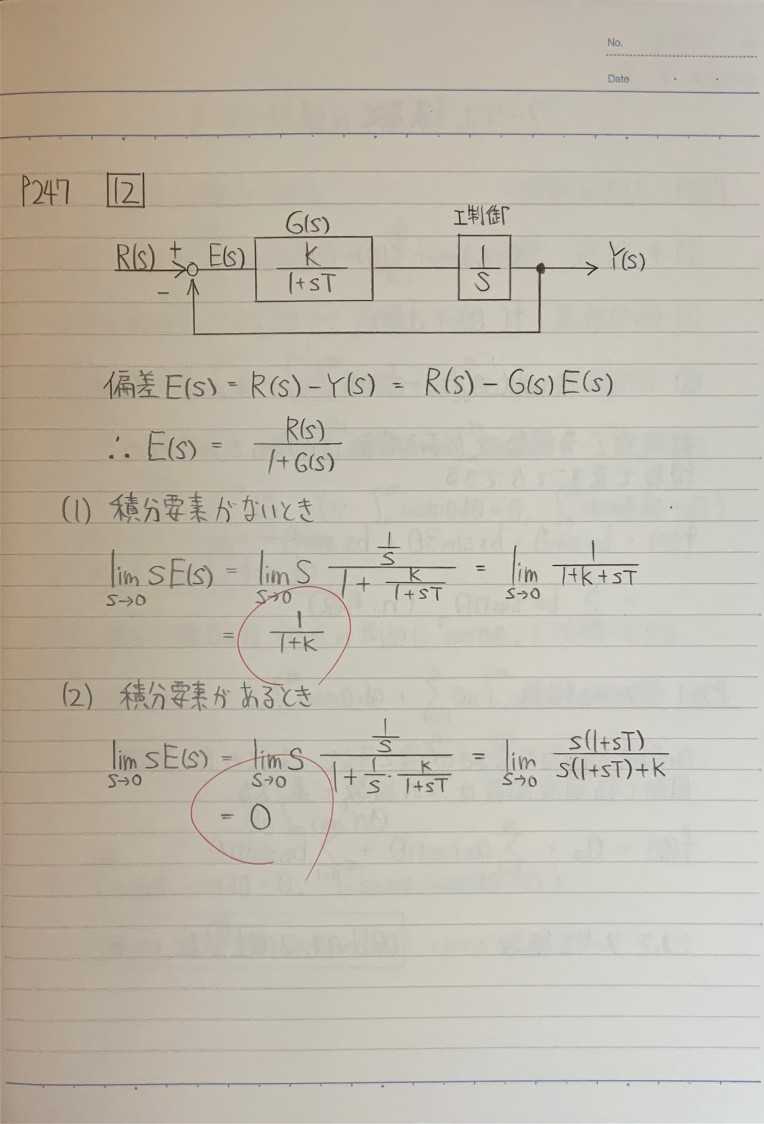 No.
Date
P247 12
G(s) I制御
R(s) + E(s) K/(1+sT) 1/S Y(s)
−
偏差E(s) = R(s) − Y(s) = R(s) − G(s)E(s)
∴ E(s) = R(s)/(1+G(s))
(1) 積分要素がないとき
lim_{s→0} sE(s) = lim_{s→0} s (1/s)/(1 + K/(1+sT)) = lim_{s→0} (1+sT)/(1+K+sT)
= 1/(1+K)
(2) 積分要素があるとき
lim_{s→0} sE(s) = lim_{s→0} s (1/s)/(1 + 1/s · K/(1+sT)) = lim_{s→0} s(1+sT)/(s(1+sT)+K)
= 0